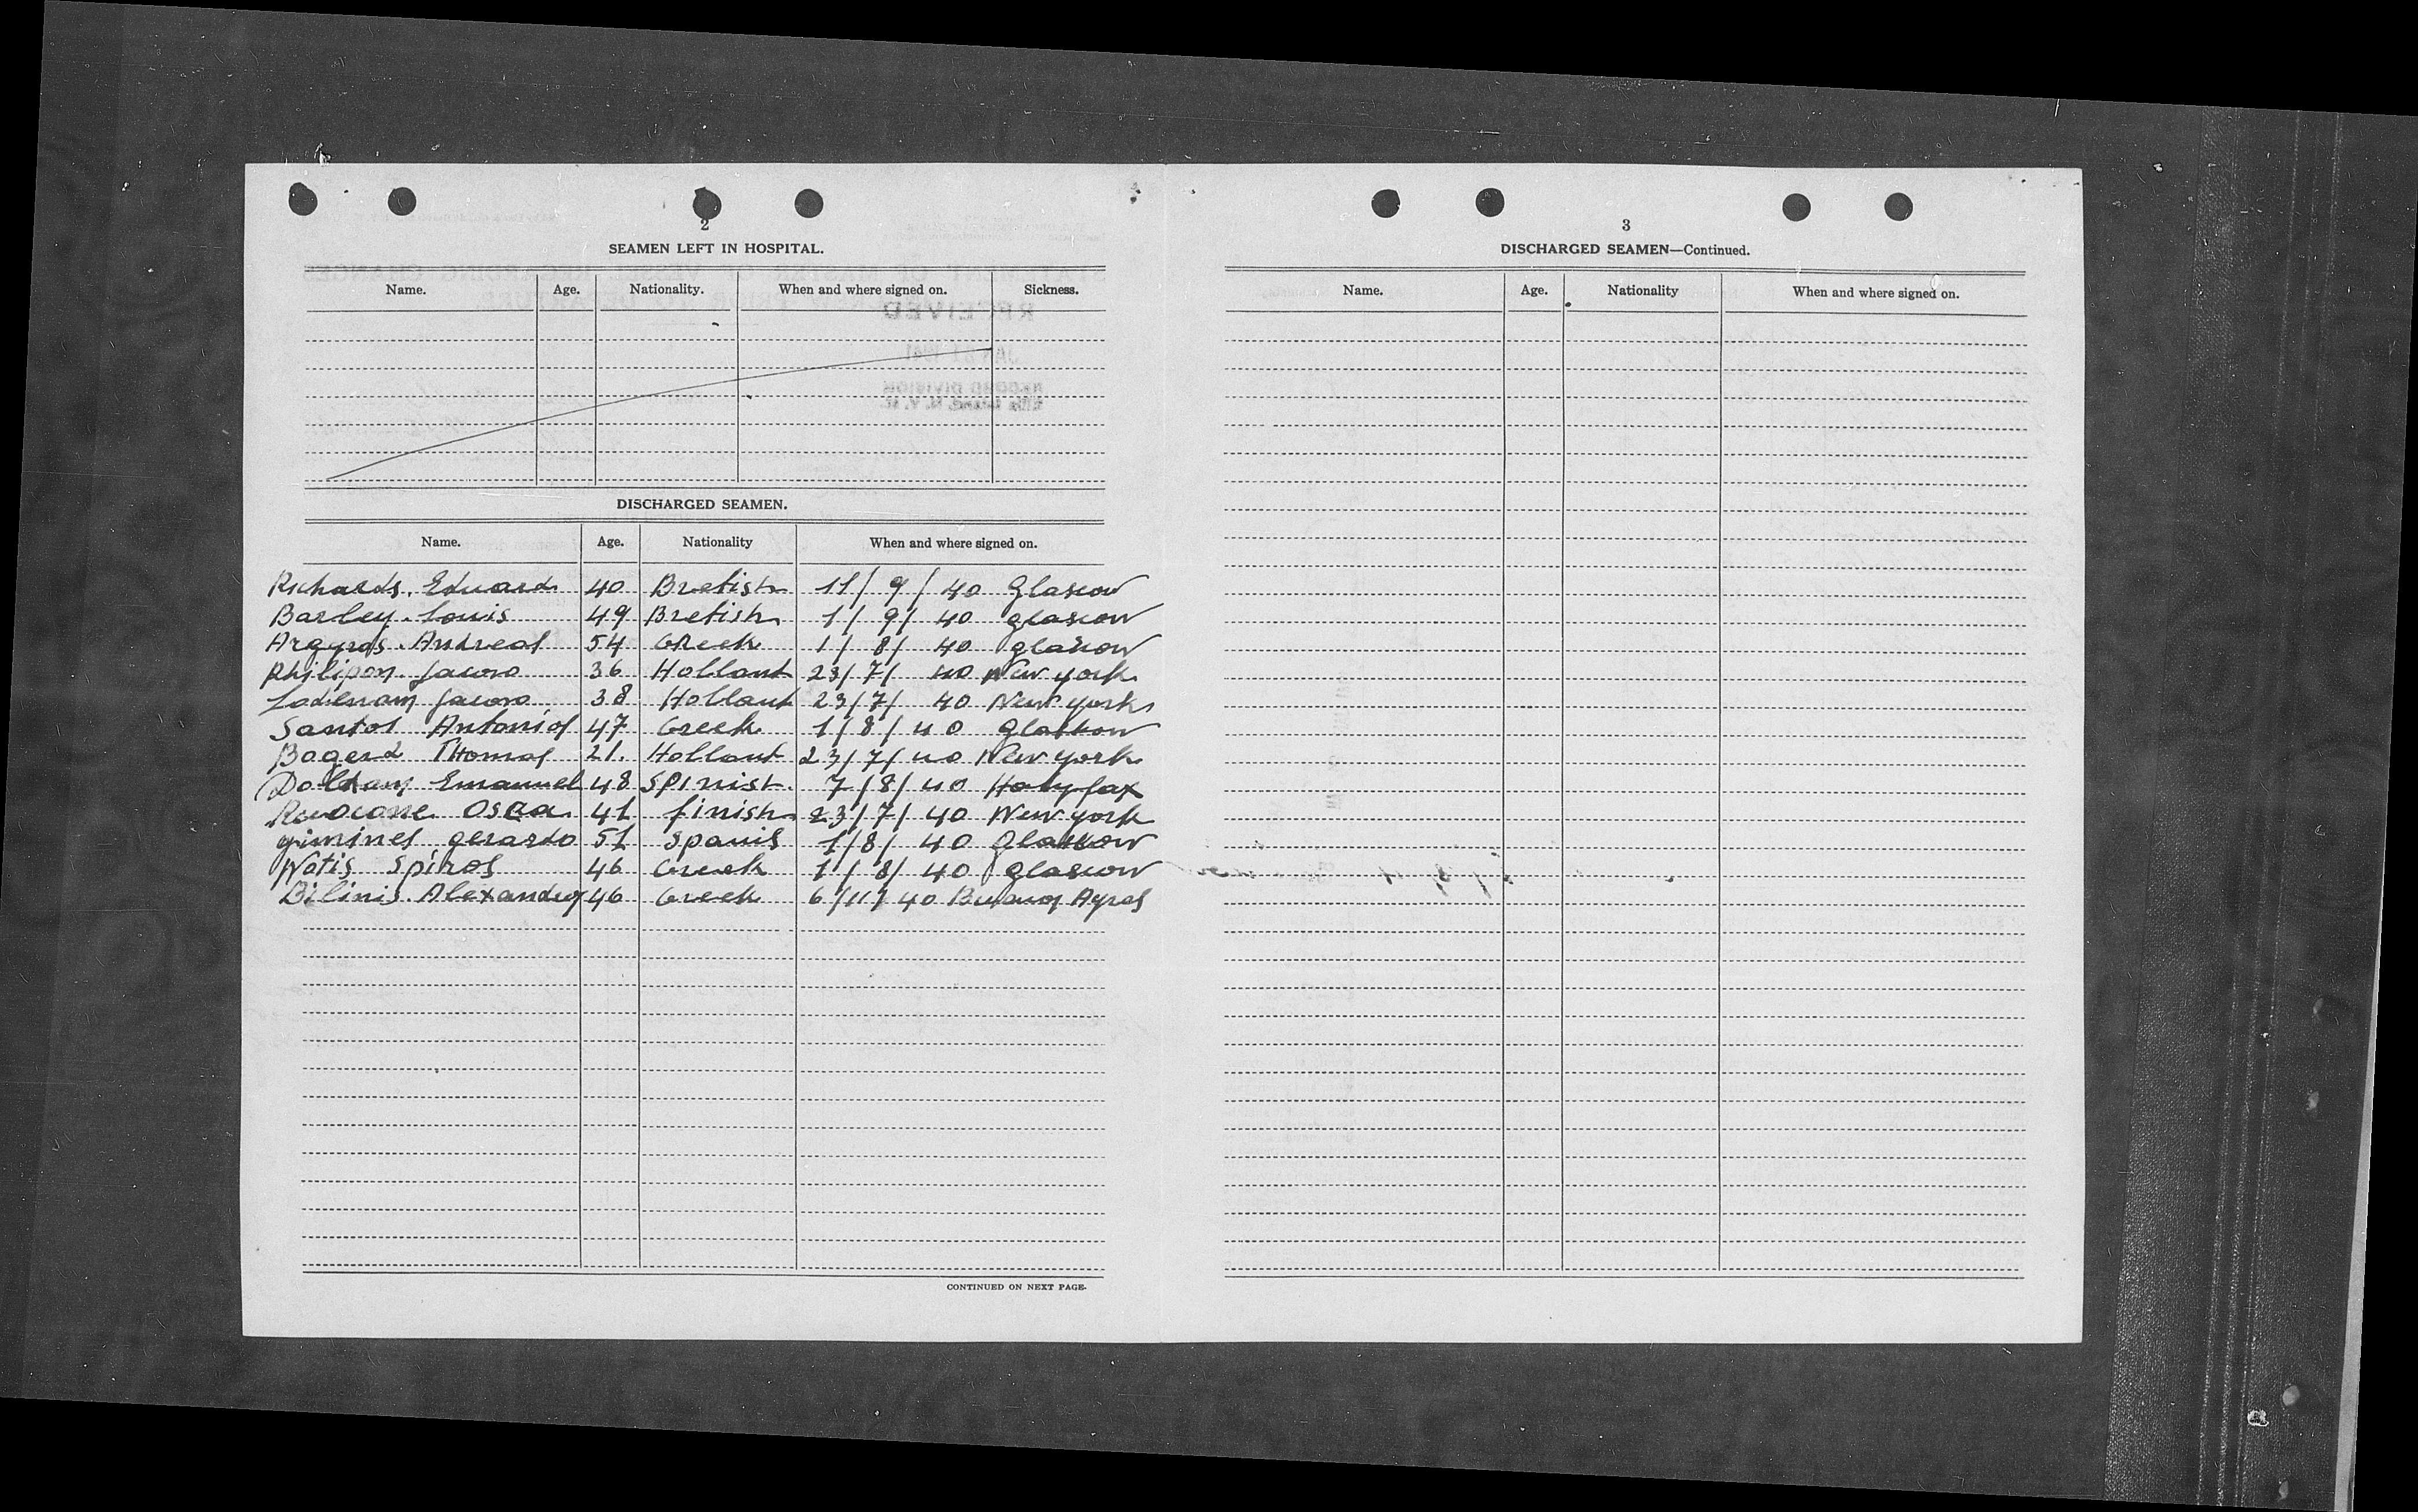 2
SEAMEN LEFT IN HOSPITAL.
Name. Age. Nationality. When and where signed on. Sickness.
DISCHARGED SEAMEN.
Name. Age. Nationality When and where signed on.
Richards. Eduard 40 Bretish 11/9/40 Glascow
Barley. Louis 49 Bretish 1/9/40 glascow
Argyros. Andreas 54 Greek 1/8/40 glascow
Philipon 36 Hollant 23/7/40 New york
38 Hollant 23/7/40 New york
Santos Antonios 47 Greek 1/8/40 Glaskow
Bogerd Thomas 21. Hollant 23/7/40 New york
Emanuel 48 Spinish. 7/8/40 Halyfax
Osca 41 finish 23/7/40 New york
gimines gerardo 51 Spanis 1/8/40 Glaskow
Notis Spiros 46 Greek 1/8/40 Glascow
Bilinis. Alexandros 46 Greek 6/11/40 Ayres
CONTINUED ON NEXT PAGE.
3
DISCHARGED SEAMEN—Continued.
Name. Age. Nationality When and where signed on.